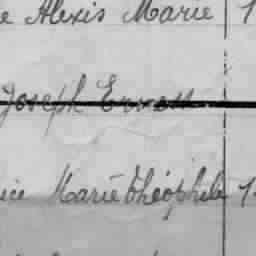 e Alexis Marie 1
Joseph Ernest
ice Marie Théophile 1